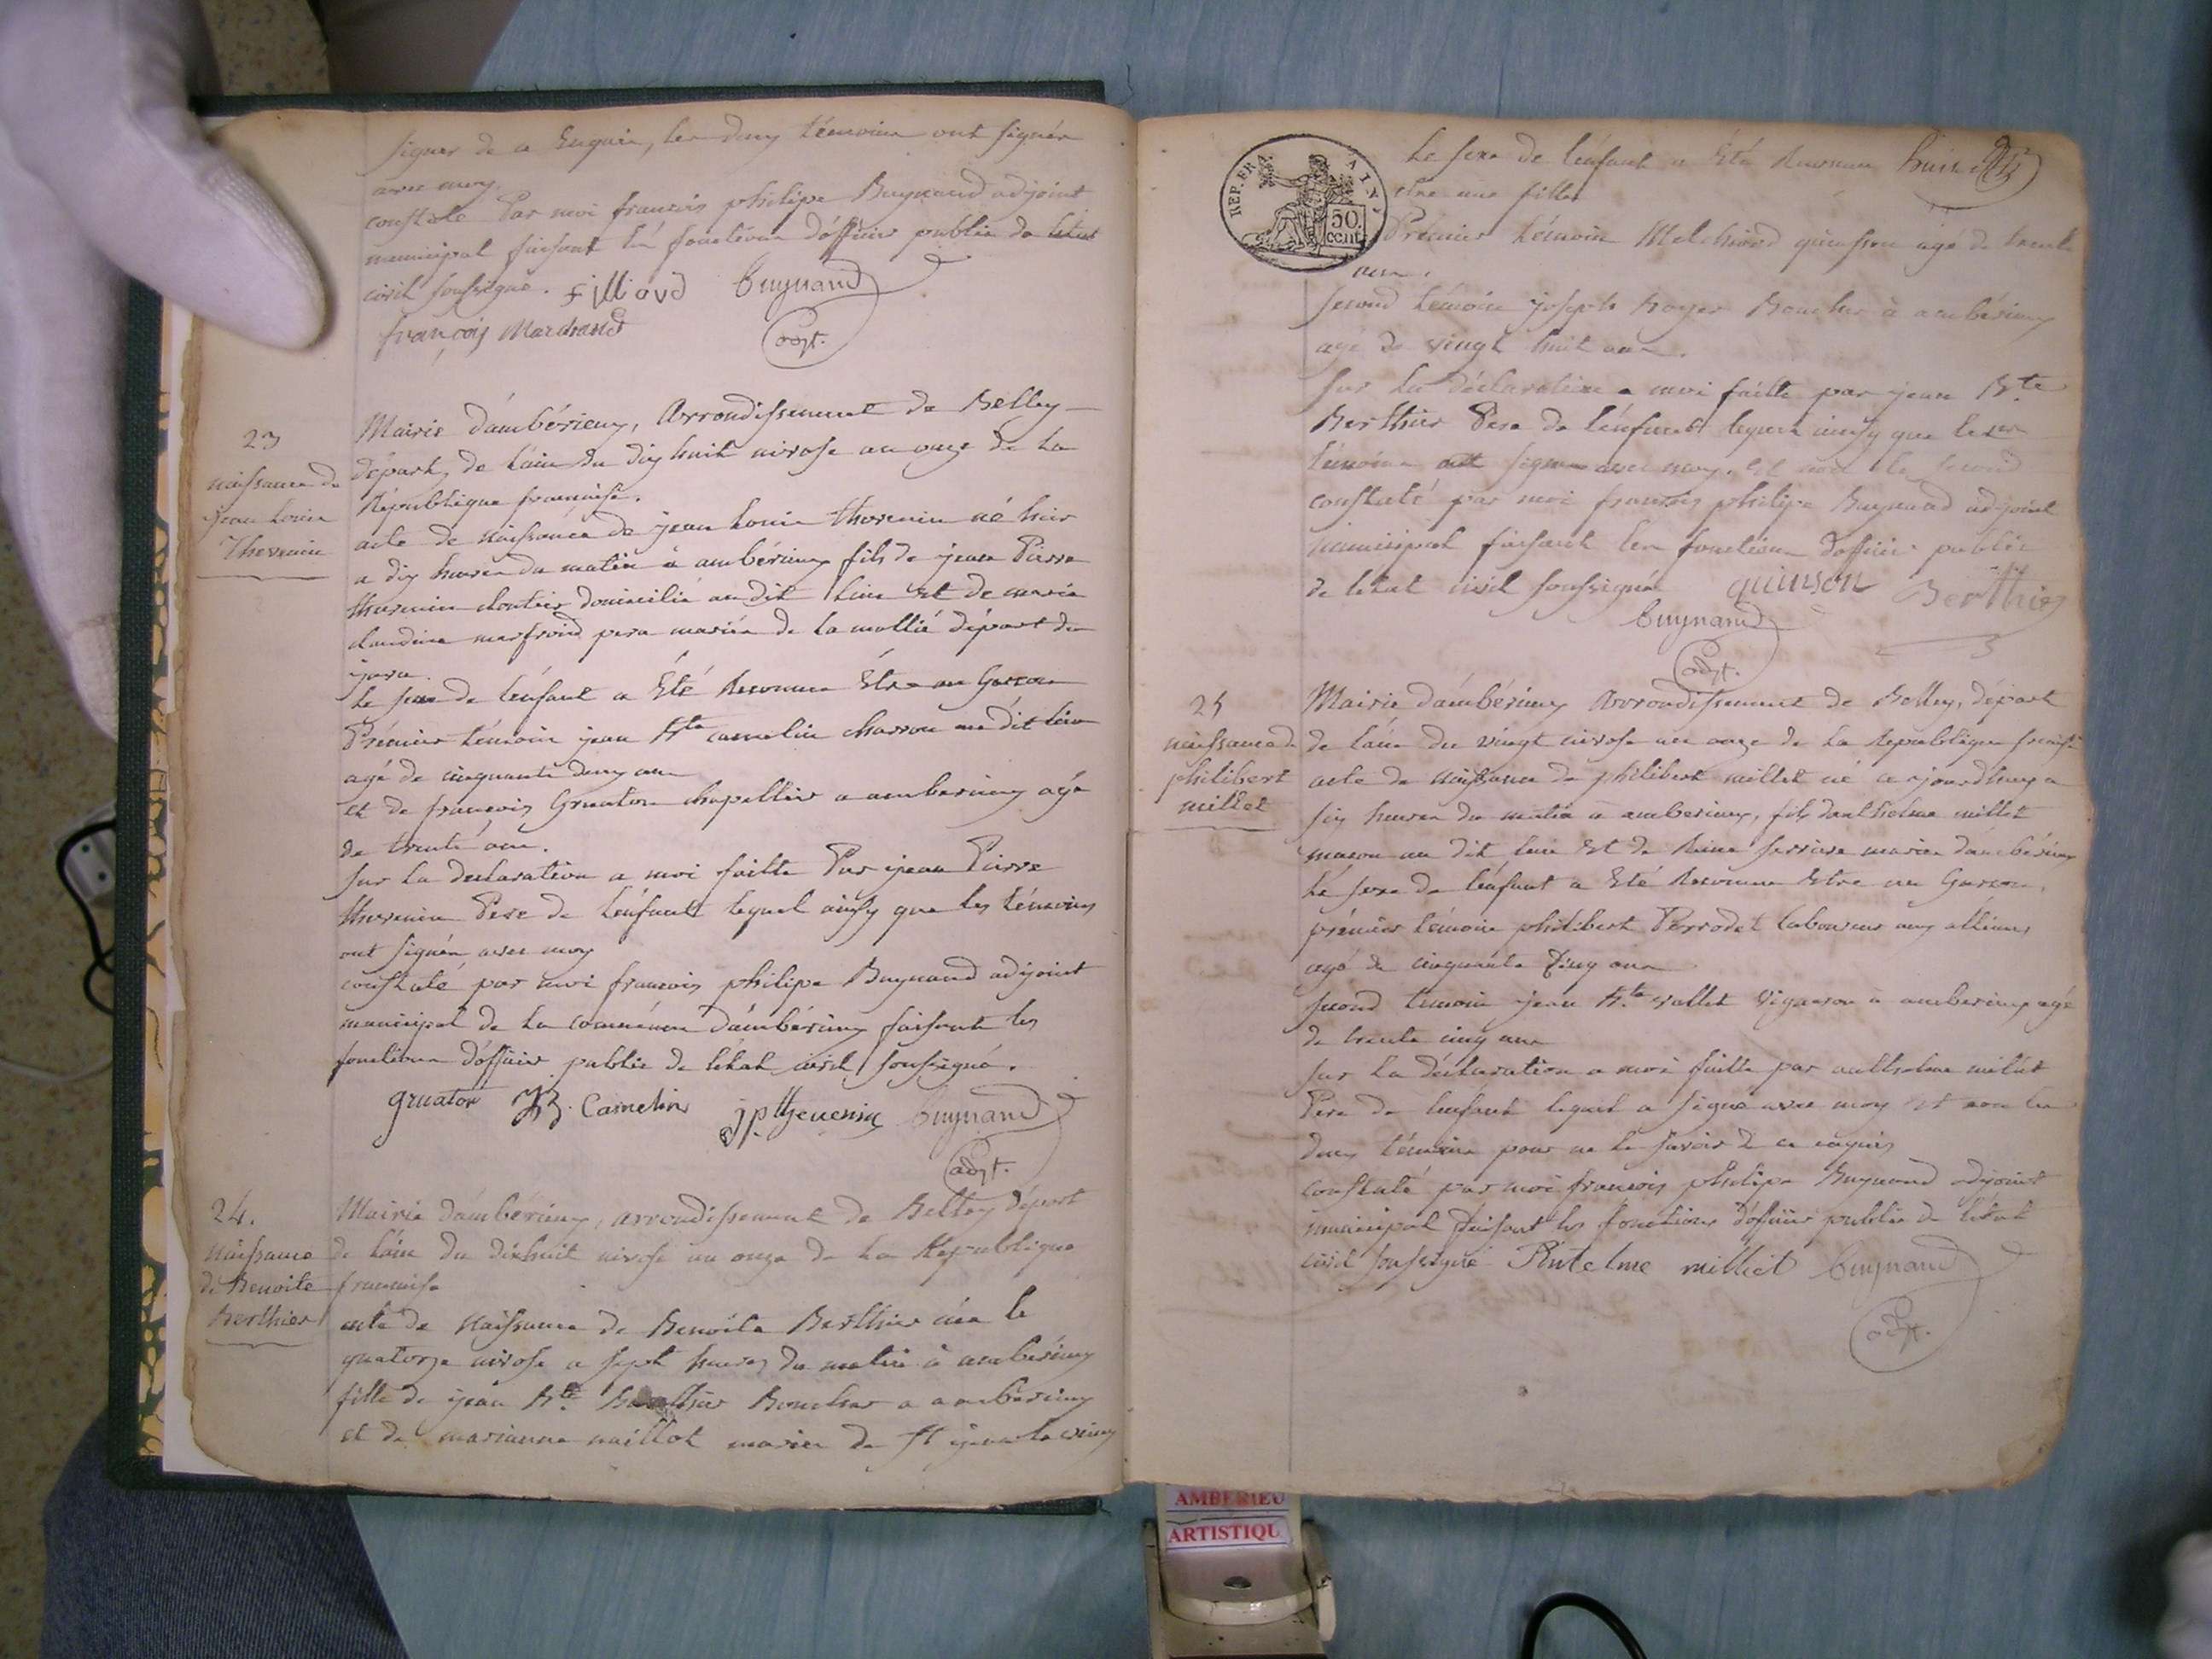 signer de ce Enquis, les deux témoins ont signés
avec moy.
constaté Par moi francois philipe Buynand adjoint
municipal faisant les fonctions d'officier public de létat
civil soussigné. filliovd buynand
françois Marchand adjt.
23
naissance de
jean Louis
Thevenin
Mairie d'ambérieux, Arrondissement de Belley
départ. de l'ain du dix huit nivose an onze de la
République française.
acte de Naissance de jean Louis thevenin né hier
a dix heures du matin à ambérieux fils de jean Pierre
thevenin cloutier domicilié au dit lieu et de marie
claudine marfroid mariés de la départ du
jura.
le sexe de l'enfant a Eté Reconnu Etre un Garcon
Prémier témoin jean Bte camelin charron au dit lieu
agé de cinquante deux ans
et de francois Gruaton chapellier a amberieux agé
de trente ans.
sur la declaration a moi faitte Par jean Pierre
thevenin Pere de l'enfant lequel ainsy que les témoins
ont signés avec moy
constaté par moi francois philipe Buynand adjoint
municipal de la commune d'ambérieux faisant les
fonctions d'officier public de létat civil soussigné.
gruaton JB. Camelin jp thevenin buynand
adjt.
24.
Naissance
de Benoite
Berthier
Mairie d'ambérieux, arrondissement de Belley départ
de l'ain du dixhuit nivose an onze de la République
francaise
acte de Naissance de Benoite Berthier née le
quatorze nivose a sept heures du matin à ambérieux
fille de jean Bte Berthier Boucher a ambérieux
et de marianne maillot mariés de St jean le vieux
REP. FRA. AIN
50 cent
Le sexe de l'enfant a Eté Reconnu
etre une fille
Prémier témoin Melchiord quinson agé de trente
ans.
second témoin joseph Royer Boucher à ambérieux
agé de vingt huit ans.
sur la déclaration a moi faitte par jean Bte
Berthier Pere de l'enfant lequel ainsy que le 1er
témoin ont signés avec moy. et non le second
constaté par moi francois philipe Buynand adjoint
municipal faisant les fonctions d'officier public
de létat civil soussigné quinson Berthier
buynand
adjt.
25
naissance de
philibert
millet
Mairie d'ambérieux Arrondissement de Belley, départ
de l'ain du vingt nivose an onze de la République
acte de naissance de philibert millet né ce jourdhuy a
six heures du matin a amberieux, fils danthelme millet
macon au dit lieu et de Reine mariés d'ambérieux
Le sexe de l'enfant a Eté Reconnu Etre un Garcon,
prémier témoin philibert Perrodet laboureur aux allimes
agé de cinquante cinq ans
second temoin jean Bte vallet vigneron à amberieux agé
de trente cinq ans
sur la déclaration a moi faitte par anthelme millet
Pere de l'enfant lequel a signé avec moy et non les
deux témoins pour ne le savoir de ce enquis
constaté par moi francois philipe Buynand adjoint
municipal faisant les fonctions d'officier public de létat
civil soussigné Antelme milliet buynand
adjt.
AMBERIEU
ARTISTIQU